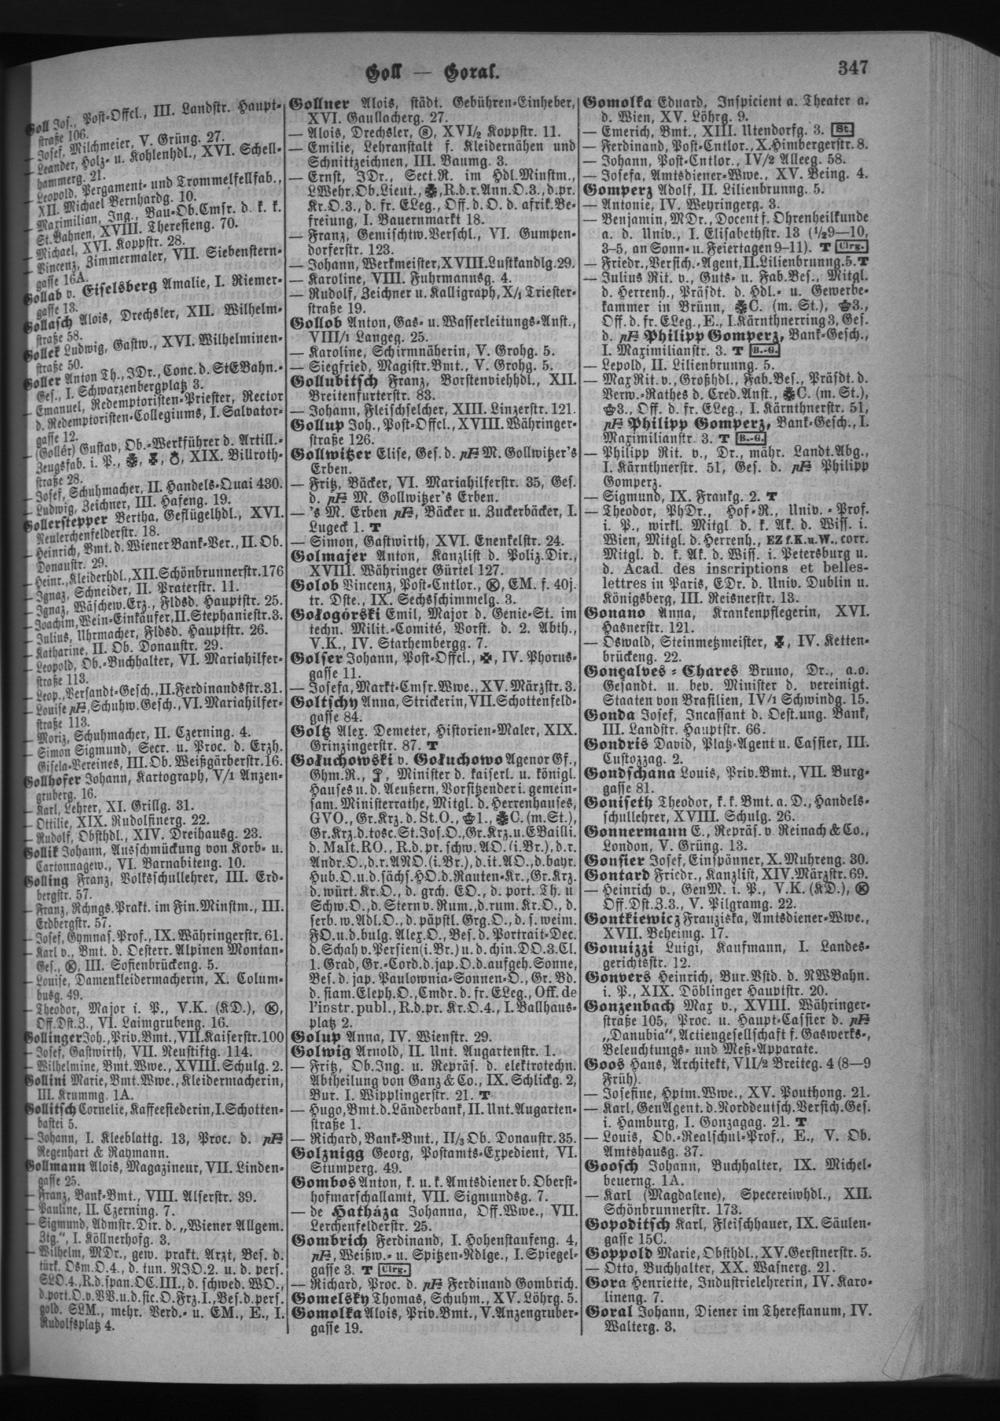 Goll — Goral.
347
Goll Jos., Post-Offcl., III. Landstr. Haupt-
straße 106.
— Josef, Milchmeier, V. Grüng. 27.
— Leander, Holz- u. Kohlenhdl., XVI. Schell-
hammerg. 21.
— Leopold, Pergament- und Trommelfellfab.,
XII. Michael Bernhardg. 10.
— Maximilian, Ing., Bau-Ob.Cmsr. d. k. k.
St.Bahnen, XVIII. Theresieng. 70.
— Michael, XVI. Koppstr. 28.
— Vincenz, Zimmermaler, VII. Siebenstern-
gasse 16A.
Gollab v. Eiselsberg Amalie, I. Riemer-
gasse 13.
Gollasch Alois, Drechsler, XII. Wilhelm-
straße 58.
Gollek Ludwig, Gastw., XVI. Wilhelminen-
straße 50.
Goller Anton Th., JDr., Conc. d. StEBahn.-
Ges., I. Schwarzenbergplatz 3.
— Emanuel, Redemptoristen-Priester, Rector
d. Redemptoristen-Collegiums, I. Salvator-
gasse 12.
— (Gollér) Gustav, Ob.-Werkführer d. Artill.-
Zeugsfab. i. P., XIX. Billroth-
straße 28.
— Josef, Schuhmacher, II. Handels-Quai 430.
— Ludwig, Zeichner, III. Hafeng. 19.
Gollerstepper Bertha, Geflügelhdl., XVI.
Neulerchenfelderstr. 18.
— Heinrich, Bmt. d. Wiener Bank-Ver., II. Ob.
Donaustr. 29.
— Heinr., Kleiderhdl., XII. Schönbrunnerstr. 176
— Ignaz, Schneider, II. Praterstr. 11.
— Ignaz, Wäschew.Erz., Fldsd. Hauptstr. 25.
— Joachim, Wein-Einkäufer, II. Stephaniestr. 3.
— Julius, Uhrmacher, Fldsd. Hauptstr. 26.
— Katharine, II. Ob. Donaustr. 29.
— Leopold, Ob.-Buchhalter, VI. Mariahilfer-
straße 113.
— Leop., Versandt-Gesch., II. Ferdinandsstr. 31.
— Louise pF, Schuhw. Gesch., VI. Mariahilfer-
straße 113.
— Moriz, Schuhmacher, II. Czerning. 4.
— Simon Sigmund, Secr. u. Proc. d. Erzh.
Gisela-Vereines, III. Ob. Weißgärberstr. 16.
Gollhofer Johann, Kartograph, V/1 Anzen-
gruberg. 16.
— Karl, Lehrer, XI. Grillg. 31.
— Ottilie, XIX. Rudolfinerg. 22.
— Rudolf, Obsthdl., XIV. Dreihausg. 23.
Gollik Johann, Ausschmückung von Korb- u.
Cartonnagew., VI. Barnabiteng. 10.
Golling Franz, Volksschullehrer, III. Erd-
bergstr. 57.
— Franz, Rchngs.Prakt. im Fin.Minstm., III.
Erdbergstr. 57.
— Josef, Gymnas.Prof., IX. Währingerstr. 61.
— Karl v., Bmt. d. Oesterr. Alpinen Montan-
Ges., Ⓚ, III. Sofienbrückeng. 5.
— Louise, Damenkleidermacherin, X. Colum-
busg. 49.
— Theodor, Major i. P., V.K. (KD.), Ⓚ,
Off.Dst.Z., VI. Laimgrubeng. 16.
Gollinger Joh., Priv.Bmt., VII. Kaiserstr. 100
— Josef, Gastwirth, VII. Neustiftg. 114.
— Wilhelmine, Bmt.Wwe., XVIII. Schulg. 2.
Gollini Marie, Bmt.Wwe., Kleidermacherin,
III. Krummg. 1A.
Gollitsch Cornelie, Kaffeesiederin, I. Schotten-
bastei 5.
— Johann, I. Kleeblattg. 13, Proc. d. pF
Regenhart & Raymann.
Gollmann Alois, Magazineur, VII. Linden-
gasse 25.
— Franz, Bank-Bmt., VIII. Alserstr. 39.
— Pauline, II. Czerning. 7.
— Sigmund, Admstr.Dir. d. „Wiener Allgem.
Ztg.“, I. Köllnerhofg. 3.
— Wilhelm, MDr., gew. prakt. Arzt, Bes. d.
türk. Osm.O.4., d. tun. NJO.2. u. d. pers.
SLO.4., R.d.span.OC.III., d. schwed. WO.,
d.port.O.v.VV.u.d.sic.O.Frz.I., Bes.d.pers.
gold. SLM., mehr. Verd.- u. EM., E., I.
Rudolfsplatz 4.
Gollner Alois, städt. Gebühren-Einheber,
XVI. Gaullacherg. 27.
— Alois, Drechsler, Ⓚ, XVI/2 Koppstr. 11.
— Emilie, Lehranstalt f. Kleidernähen und
Schnittzeichnen, III. Baumg. 3.
— Ernst, JDr., Sect.R. im Hdl.Minstm.,
LWehr.Ob.Lieut., R.d.r.Ann.O.3., d.pr.
Kr.O.3., d. fr. ELeg., Off. d. O. d. afrik.Be-
freiung, I. Bauernmarkt 18.
— Franz, Gemischtw.Verschl., VI. Gumpen-
dorferstr. 123.
— Johann, Werkmeister, XVIII. Lustkandlg. 29.
— Karoline, VIII. Fuhrmannsg. 4.
— Rudolf, Zeichner u. Kalligraph, X/1 Triester-
straße 19.
Gollob Anton, Gas- u. Wasserleitungs-Anst.,
VIII/1 Langeg. 25.
— Karoline, Schirmnäherin, V. Grohg. 5.
— Siegfried, Magistr.Bmt., V. Grohg. 5.
Gollubitsch Franz, Borstenviehhdl., XII.
Breitenfurterstr. 83.
— Johann, Fleischselcher, XIII. Linzerstr. 121.
Gollup Joh., Post-Offcl., XVIII. Währinger-
straße 126.
Gollwitzer Elise, Ges. d. pF M. Gollwitzer's
Erben.
— Fritz, Bäcker, VI. Mariahilferstr. 35, Ges.
d. pF M. Gollwitzer's Erben.
— 's M. Erben pF, Bäcker u. Zuckerbäcker, I.
Lugeck 1. T
— Simon, Gastwirth, XVI. Enenkelstr. 24.
Golmajer Anton, Kanzlist d. Poliz.Dir.,
XVIII. Währinger Gürtel 127.
Golob Vincenz, Post-Cntlor., Ⓚ, EM. f. 40j.
tr. Dste., IX. Sechsschimmelg. 3.
Gołogórski Emil, Major d. Genie-St. im
techn. Milit.-Comité, Vorst. d. 2. Abth.,
V.K., IV. Starhembergg. 7.
Golser Johann, Post-Offcl., IV. Phorus-
gasse 11.
— Josefa, Markt-Cmsr.Wwe., XV. Märzstr. 3.
Goltschy Anna, Strickerin, VII. Schottenfeld-
gasse 84.
Goltz Alex. Demeter, Historien-Maler, XIX.
Grinzingerstr. 87. T
Gołuchowski v. Gołuchowo Agenor Gf.,
Ghm.R., Minister d. kaiserl. u. königl.
Hauses u. d. Aeußern, Vorsitzender i. gemein-
sam. Ministerrathe, Mitgl. d. Herrenhauses,
GVO., Gr.Krz. d. St.O., 1., C. (m.St.),
Gr.Krz.d.tosc.St.Jos.O., Gr.Krz.u.EBailli.
d. Malt.RO., R.d.pr. schw. AO. (i.Br.), d.r.
Andr.O., d.r.ANO.(i.Br.), d.it.AO., d.bayr.
Hub.O.u.d.sächs.HO.d.Rauten-Kr., Gr.Krz.
d. würt. Kr.O., d. grch. EO., d. port. Th. u
Schw.O., d. Stern v. Rum., d.rum. Kr.O., d.
serb. w. Adl.O., d. päpstl. Grg.O., d. s. weim.
FO.u.d.bulg. Alex.O., Bes.d. Portrait-Dec.
d. Schah v. Persien (i. Br.) u. d. chin. DO.3.Cl.
1. Grad, Gr.-Cord.d.jap.O.d.aufgeh.Sonne,
Bes. d. jap. Paulownia-Sonnen-O., Gr. Bd.
d. siam. Eleph.O., Cmdr. d. fr. ELeg., Off. de
l'instr. publ., R.d.pr. Kr.O.4., I. Ballhaus-
platz 2.
Golup Anna, IV. Wienstr. 29.
Golwig Arnold, II. Unt. Augartenstr. 1.
— Fritz, Ob.Ing. u. Repräs. d. elektrotechn.
Abtheilung von Ganz & Co., IX. Schlickg. 2,
Bur. I. Wipplingerstr. 21. T
— Hugo, Bmt. d. Länderbank, II. Unt. Augarten-
straße 1.
— Richard, Bank-Bmt., II/3 Ob. Donaustr. 35.
Golznigg Georg, Postamts-Expedient, VI.
Stumperg. 49.
Gombos Anton, k. u. k. Amtsdiener b. Oberst-
hofmarschallamt, VII. Sigmundsg. 7.
— de Hatháza Johanna, Off.Wwe., VII.
Lerchenfelderstr. 25.
Gombrich Ferdinand, I. Hohenstaufeng. 4,
pF, Weißw.- u. Spitzen-Ndlge., I. Spiegel-
gasse 3. T Clrg.
— Richard, Proc. d. pF Ferdinand Gombrich.
Gomelsky Thomas, Schuhm., XV. Löhrg. 5.
Gomolka Alois, Priv.Bmt., V. Anzengruber-
gasse 19.
Gomolka Eduard, Inspicient a. Theater a.
d. Wien, XV. Löhrg. 9.
— Emerich, Bmt., XIII. Utendorfg. 3. St.
— Ferdinand, Post-Cntlor., X. Himbergerstr. 8.
— Johann, Post-Cntlor., IV/2 Alleeg. 58.
— Josefa, Amtsdiener-Wwe., XV. Being. 4.
Gomperz Adolf, II. Lilienbrunng. 5.
— Antonie, IV. Weyringerg. 3.
— Benjamin, MDr., Docent f. Ohrenheilkunde
a. d. Univ., I. Elisabethstr. 13 (½9—10,
3–5, an Sonn- u. Feiertagen 9–11). T Clrg.
— Friedr., Versich.-Agent, II. Lilienbrunng. 5. T
— Julius Rit. v., Guts- u. Fab.Bes., Mitgl.
d. Herrenh., Präsdt. d. Hdl.- u. Gewerbe-
kammer in Brünn, C. (m. St.), 3.,
Off. d. fr. ELeg., E., I. Kärnthnerring 3, Ges.
d. pF Philipp Gomperz, Bank-Gesch.,
I. Maximilianstr. 3. T B.-G.
— Lepold, II. Lilienbrunng. 5.
— Max Rit. v., Großhdl., Fab.Bes., Präsdt. d.
Verw.-Rathes d. Cred.Anst., C. (m. St.),
3., Off. d. fr. ELeg., I. Kärnthnerstr. 51,
pF Philipp Gomperz, Bank-Gesch., I.
Maximilianstr. 3. T B.-G.
— Philipp Rit. v., Dr., mähr. Landt.Abg.,
I. Kärnthnerstr. 51, Ges. d. pF Philipp
Gomperz.
— Sigmund, IX. Frankg. 2. T
— Theodor, PhDr., Hof-R., Univ.-Prof.
i. P., wirkl. Mitgl d. k. Ak. d. Wiss. i.
Wien, Mitgl. d. Herrenh., EZ f.K.u.W., corr.
Mitgl. d. k. Ak. d. Wiss. i. Petersburg u.
d. Acad. des inscriptions et belles-
lettres in Paris, EDr. d. Univ. Dublin u.
Königsberg, III. Reisnerstr. 13.
Gonano Anna, Krankenpflegerin, XVI.
Hasnerstr. 121.
— Oswald, Steinmetzmeister, IV. Ketten-
brückeng. 22.
Gonçalves-Chares Bruno, Dr., a.o.
Gesandt. u. bev. Minister d. vereinigt.
Staaten von Brasilien, IV/1 Schwindg. 15.
Gonda Josef, Incassant d. Oest.ung. Bank,
III. Landstr. Hauptstr. 66.
Gondris David, Platz-Agent u. Cassier, III.
Custozzag. 2.
Gondschana Louis, Priv.Bmt., VII. Burg-
gasse 81.
Goniseth Theodor, k. k. Bmt. a. D., Handels-
schullehrer, XVIII. Schulg. 26.
Gonnermann E., Repräs. v. Reinach & Co.,
London, V. Grüng. 13.
Gonsier Josef, Einspänner, X. Muhreng. 30.
Gontard Friedr., Kanzlist, XIV. Märzstr. 69.
— Heinrich v., GenM. i. P., V.K. (KD.), Ⓚ
Off.Dst.Z.3., V. Pilgramg. 22.
Gontkiewicz Franziska, Amtsdiener-Wwe.,
XVII. Beheimg. 17.
Gonuizzi Luigi, Kaufmann, I. Landes-
gerichtsstr. 12.
Gonvers Heinrich, Bur.Vstd. d. NWBahn.
i. P., XIX. Döblinger Hauptstr. 20.
Gonzenbach Max v., XVIII. Währinger-
straße 105, Proc. u. Haupt-Cassier d. pF
„Danubia“, Actiengesellschaft f. Gaswerks-,
Beleuchtungs- und Meß-Apparate.
Goos Hans, Architekt, VII/2 Breiteg. 4 (8—9
Früh).
— Josefine, Hptm.Wwe., XV. Pouthong. 21.
— Karl, GenAgent. d. Norddeutsch. Versich.Ges.
i. Hamburg, I. Gonzagag. 21. T
— Louis, Ob.-Realschul-Prof., E., V. Ob.
Amtshausg. 37.
Goosch Johann, Buchhalter, IX. Michel-
beuerng. 1A.
— Karl (Magdalene), Specereiwhdl., XII.
Schönbrunnerstr. 173.
Gopoditsch Karl, Fleischhauer, IX. Säulen-
gasse 15C.
Goppold Marie, Obsthdl., XV. Gerstnerstr. 5.
— Otto, Buchhalter, XX. Wasnerg. 21.
Gora Henriette, Industrielehrerin, IV. Karo-
lineng. 7.
Goral Johann, Diener im Theresianum, IV.
Walterg. 3.